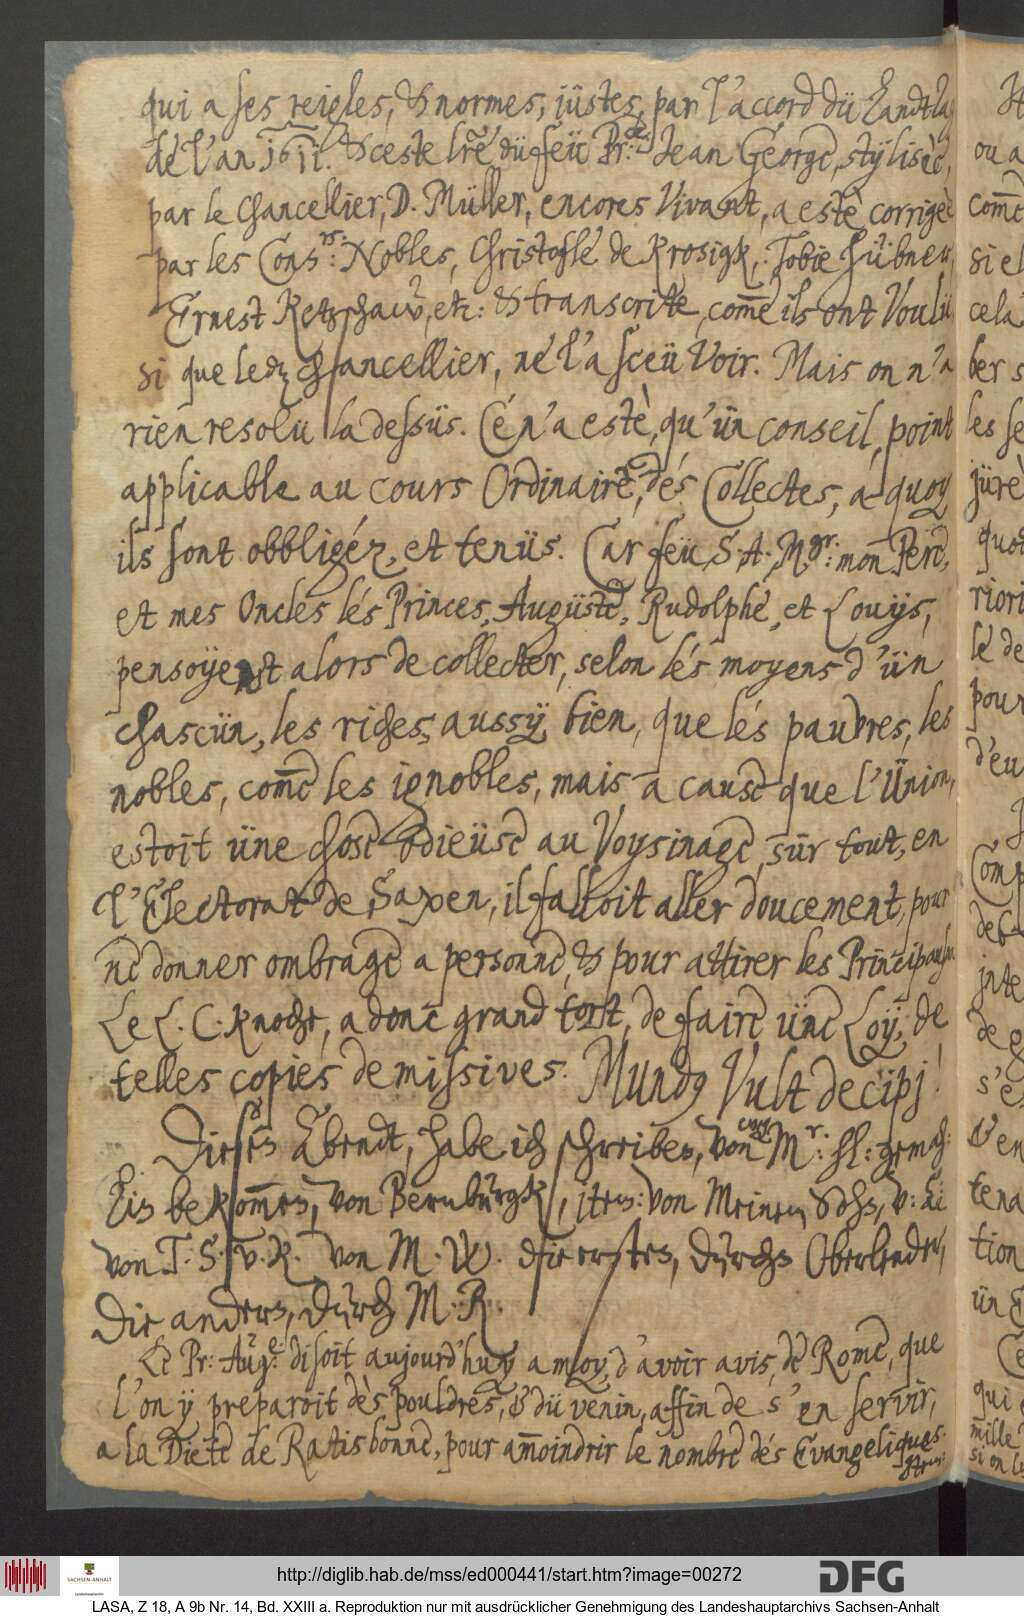 qui a ses reigles, & normes, jüstes, par l'accord dü Landta
dé l'an 1611. & ceste lré dü feü Pr: Jean George, stylisèe,
par le Chancellier, D. Müller, encores Vivant, a estè corrigèe
par les Cons.rs: Nobles, Christofle de Krosigk, Tobie Hübner,
Ernest Ketschaw, etc: & transcrite, comé ils ont Voulü
si que ledz Chancellier, né l'a sceü Voir. Mais on n'a
rien resolu la dessüs. Cé n'a estè, qu'ün conseil, point
applicable au cours Ordinaire, dés Collectes, a quoy
ils sont obbligéz, et tenüs. Car feü S. A. Mgr: mon Pere,
et mes Oncles lés Princes, Augüste, Rudolphe, et Louys,
pensoÿent alors de collecter, selon lés moyens d'ün
chascün, les riches, aussÿ bien, que lés pauvres, les
nobles, come les ignobles, mais a cause que l'Ünion,
estoit üne chose odieüse au Voysinage, sür tout, en
l'Electorat de Saxen, il falloit aller doucement, pour
ne donner ombrage a personne, & pour attirer les Principaulx
Le L. C. Knoche, a donc grand tort, de faire üne Loÿ, de
telles copies de missives. Mundus Vult decipj!
Dieses Abendt, habe ich schreiben, von Mr: fl: gemah:
Eis bekommen, von Bernbürgk, item: von Meinem Oehs, v:
von T. S. v. R. von M. W. die ersten, dürchs Oberlender,
Die andern, dürch M. R.
Le Pr: Aug.e: disoit aujourd'huy a moy, d'avoir avis, de Rome, que
l'on ÿ preparoit dès pouldres, & dü venin, affin de s'en servir,
a la Diete de Ratisbonne, pour amoindrir le nombre dés Evangeliques.
Item:
http://diglib.hab.de/mss/ed000441/start.htm?image=00272
SACHSEN-ANHALT
DFG
LASA, Z 18, A 9b Nr. 14, Bd. XXIII a. Reproduktion nur mit ausdrücklicher Genehmigung des Landeshauptarchivs Sachsen-Anhalt